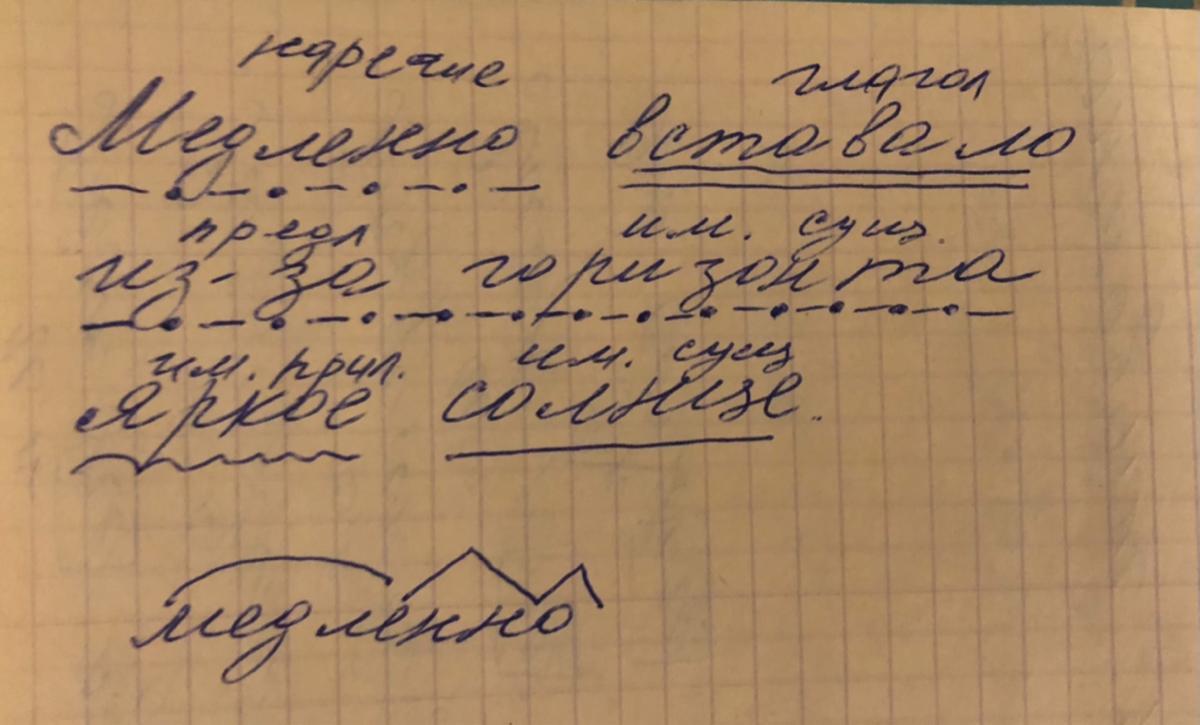 наречие глагол
Медленно вставало
предл им. сущ.
из-за горизонта
им. прил. им. сущ
яркое солнце.
медленно